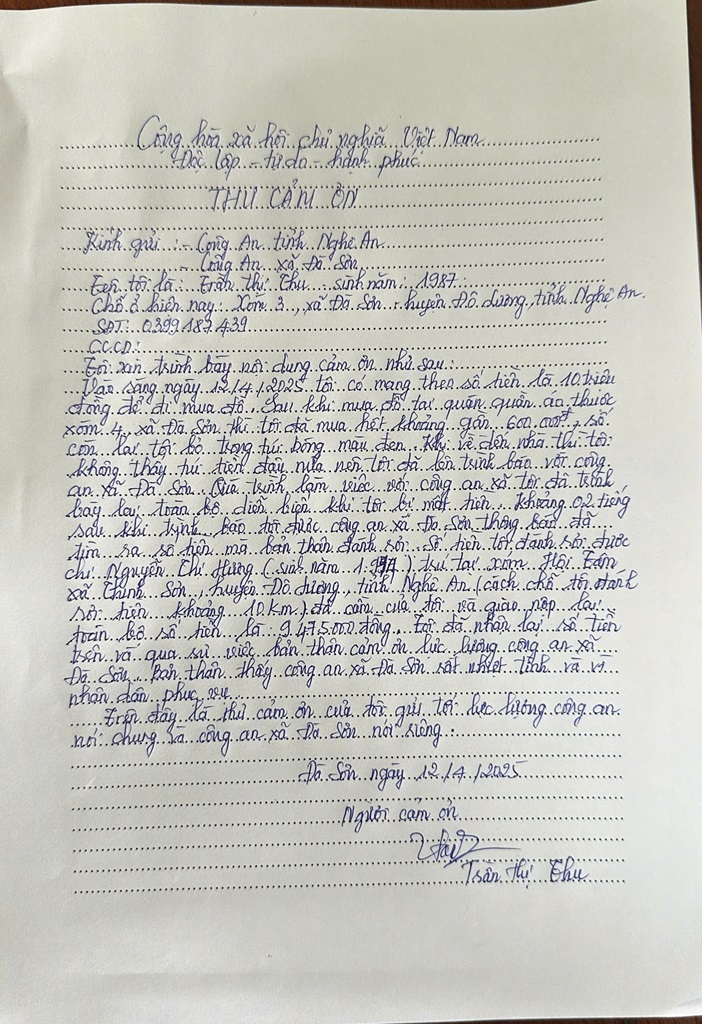 Cộng hòa xã hội chủ nghĩa Việt Nam
Độc lập - tự do - hạnh phúc
THƯ CẢM ƠN
Kính gửi : - Công An tỉnh Nghệ An
- Công An xã Đà Sơn
Tên tôi là : Trần Thị Thu sinh năm : 1987
Chỗ ở hiện nay : Xóm 3, xã Đà Sơn - huyện Đô Lương, tỉnh Nghệ An.
SĐT: 0399187439
CCCD:
Tôi xin trình bày nội dung cảm ơn như sau :
Vào sáng ngày 12/4/2025 tôi có mang theo số tiền là 10 triệu
đồng để đi mua đồ. Sau khi mua đồ tại quán quần áo thuộc
xóm 4, xã Đà Sơn thì tôi đã mua hết khoảng gần 600.000đ, số
còn lại tôi bỏ trong túi bóng màu đen. Khi về đến nhà thì tôi
không thấy túi tiền đâu nữa nên tôi đã lên trình báo với công
an xã Đà Sơn. Quá trình làm việc với công an xã tôi đã trình
bày lại toàn bộ diễn biến khi tôi bị mất tiền. Khoảng 02 tiếng
sau khi trình báo tôi được công an xã Đà Sơn thông báo đã
tìm ra số tiền mà bản thân đánh rơi. Số tiền tôi đánh rơi được
chị Nguyễn Thị Hương (sinh năm ) trú tại xóm Hội Tâm
xã Thịnh Sơn, huyện Đô Lương, tỉnh Nghệ An (cách chỗ tôi đánh
rơi tiền khoảng 10 km) đã cầm của tôi và giao nộp lại
toàn bộ số tiền là : 9.475.000 đồng. Tôi đã nhận lại số tiền
trên và qua sự việc bản thân cảm ơn lực lượng công an xã
Đà Sơn. Bản thân thấy công an xã Đà Sơn rất nhiệt tình và vì
nhân dân phục vụ.
Trên đây là thư cảm ơn của tôi gửi tới lực lượng công an
nói chung và công an xã Đà Sơn nói riêng.
Đà Sơn ngày 12/4/2025
Người cảm ơn
Trần Thị Thu